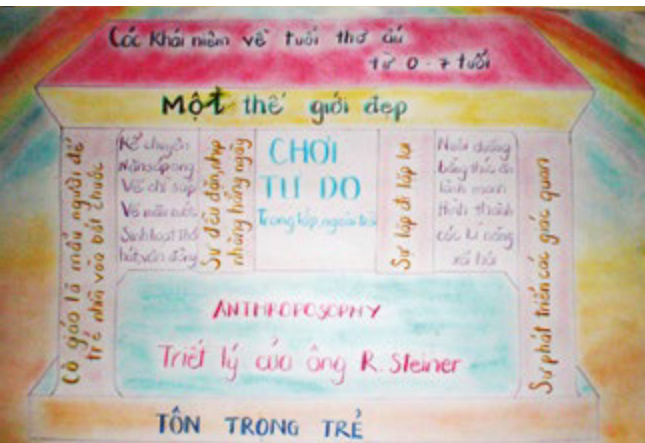 Các Khái niệm về tuổi thơ ấu
từ 0 - 7 tuổi
Một thế giới đẹp
Cô giáo là mẫu người để
trẻ nhìn vào bắt chước
Kể chuyện
Nặn sáp ong
Vẽ chì sáp
Vẽ màu nước
Sinh hoạt thơ
hát, vận động
Sự đều đặn, nhịp
nhàng hàng ngày
CHƠI
TỰ DO
Trong lớp, ngoài trời
Sự lặp đi lặp lại
Nuôi dưỡng
bằng thức ăn
lành mạnh
Hình thành
các kĩ năng
xã hội
Sự phát triển các giác quan
ANTHROPOSOPHY
Triết lý của ông R. Steiner
TÔN TRỌNG TRẺ